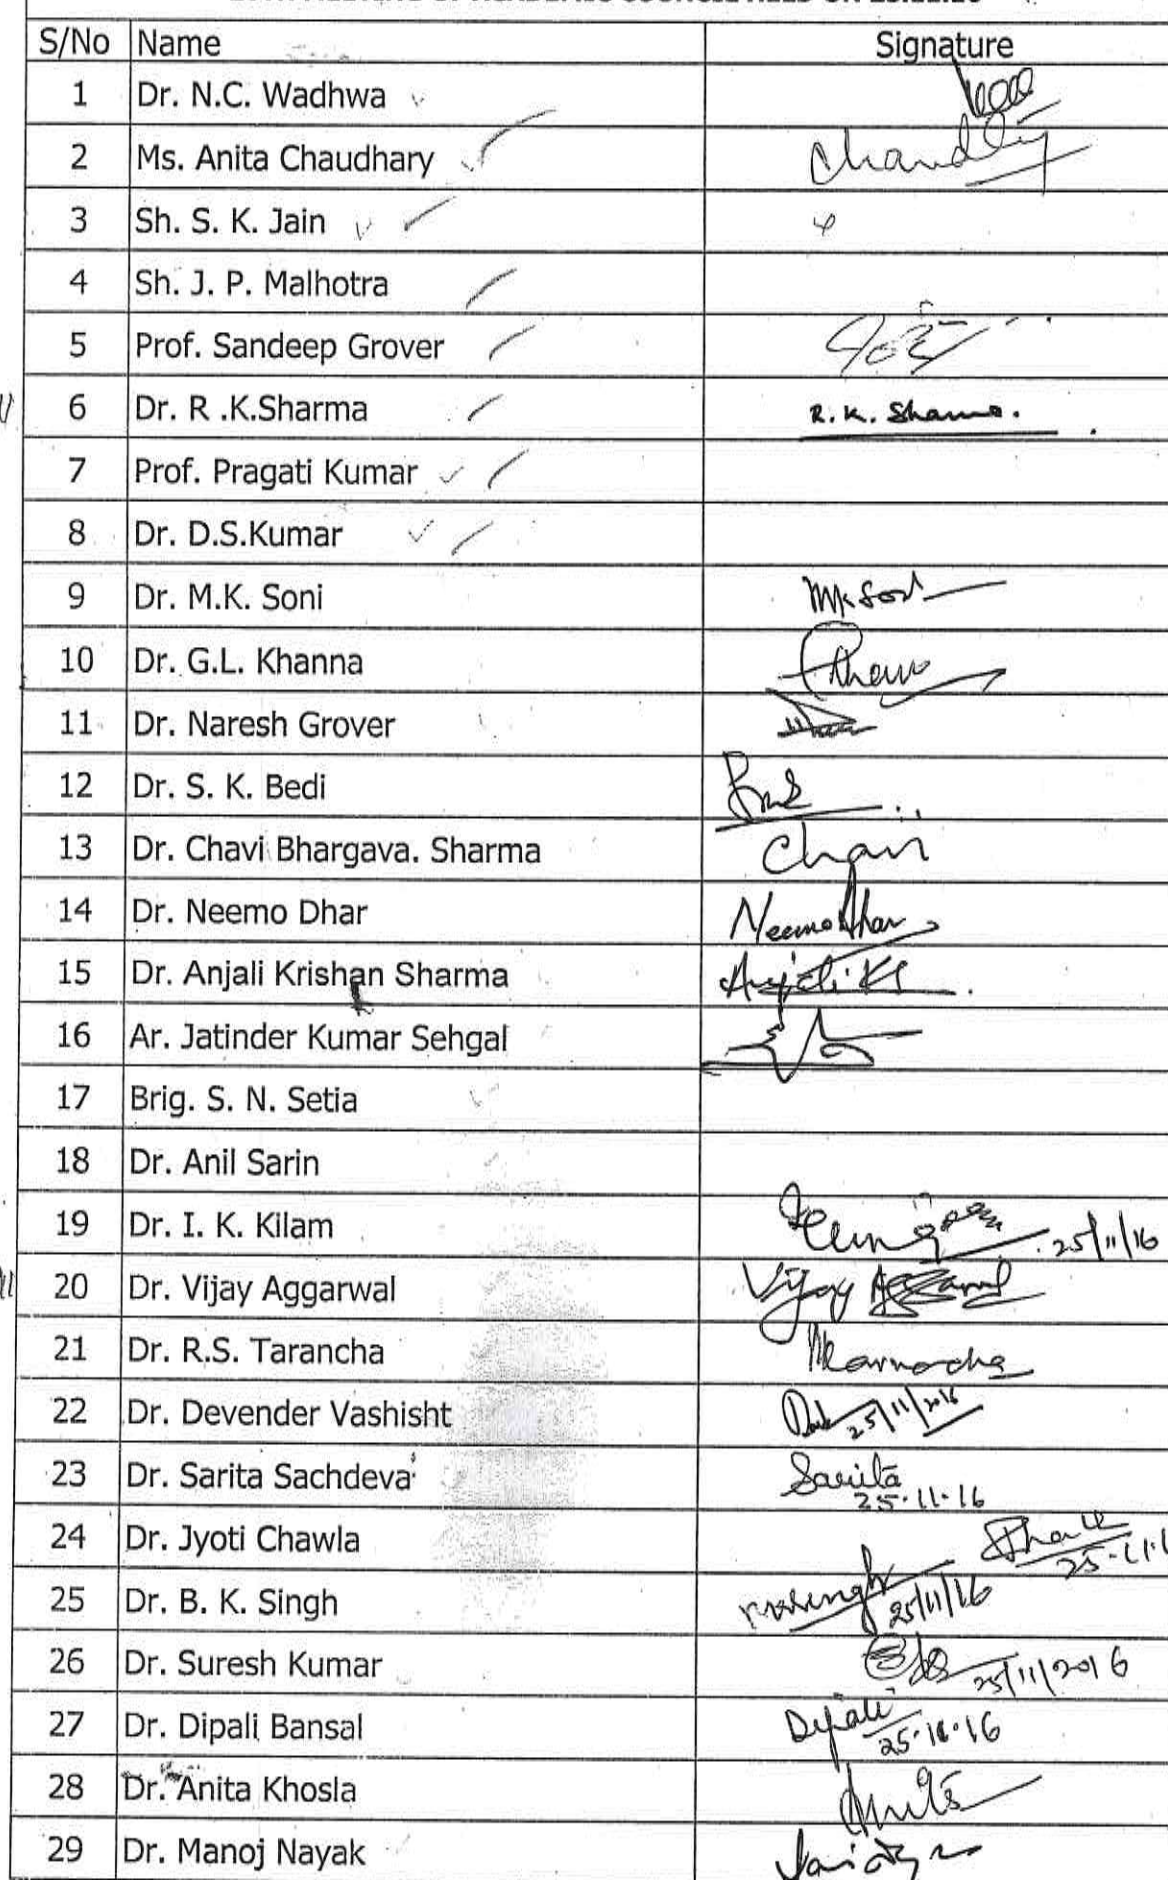 S/No Name Signature
1 Dr. N.C. Wadhwa
2 Ms. Anita Chaudhary
3 Sh. S. K. Jain
4 Sh. J. P. Malhotra
5 Prof. Sandeep Grover
6 Dr. R .K.Sharma R. K. Sharma.
7 Prof. Pragati Kumar
8 Dr. D.S.Kumar
9 Dr. M.K. Soni MK Soni
10 Dr. G.L. Khanna
11 Dr. Naresh Grover
12 Dr. S. K. Bedi
13 Dr. Chavi Bhargava. Sharma Chavi
14 Dr. Neemo Dhar Neemo Dhar
15 Dr. Anjali Krishan Sharma Anjali KS
16 Ar. Jatinder Kumar Sehgal
17 Brig. S. N. Setia
18 Dr. Anil Sarin
19 Dr. I. K. Kilam 25/11/16
20 Dr. Vijay Aggarwal Vijay Aggarwal
21 Dr. R.S. Tarancha
22 Dr. Devender Vashisht 25/11/2016
23 Dr. Sarita Sachdeva Sarita
25.11.16
24 Dr. Jyoti Chawla
25 Dr. B. K. Singh 25/11/16
26 Dr. Suresh Kumar 25/11/2016
27 Dr. Dipali Bansal Dipali
25.11.16
28 Dr. Anita Khosla Anita
29 Dr. Manoj Nayak